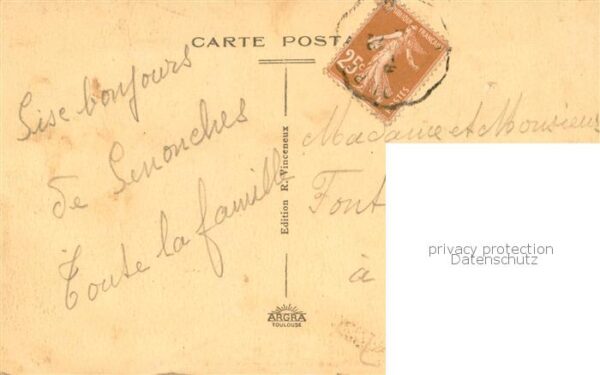 CARTE POSTA
REPUBLIQUE FRANÇAISE
25c
POSTES
Sise bonjours
de Senonches
Toute la famille
Edition R. Vinceneux
ARGRA
TOULOUSE
Madame et Monsieur
Font
à
privacy protection
Datenschutz